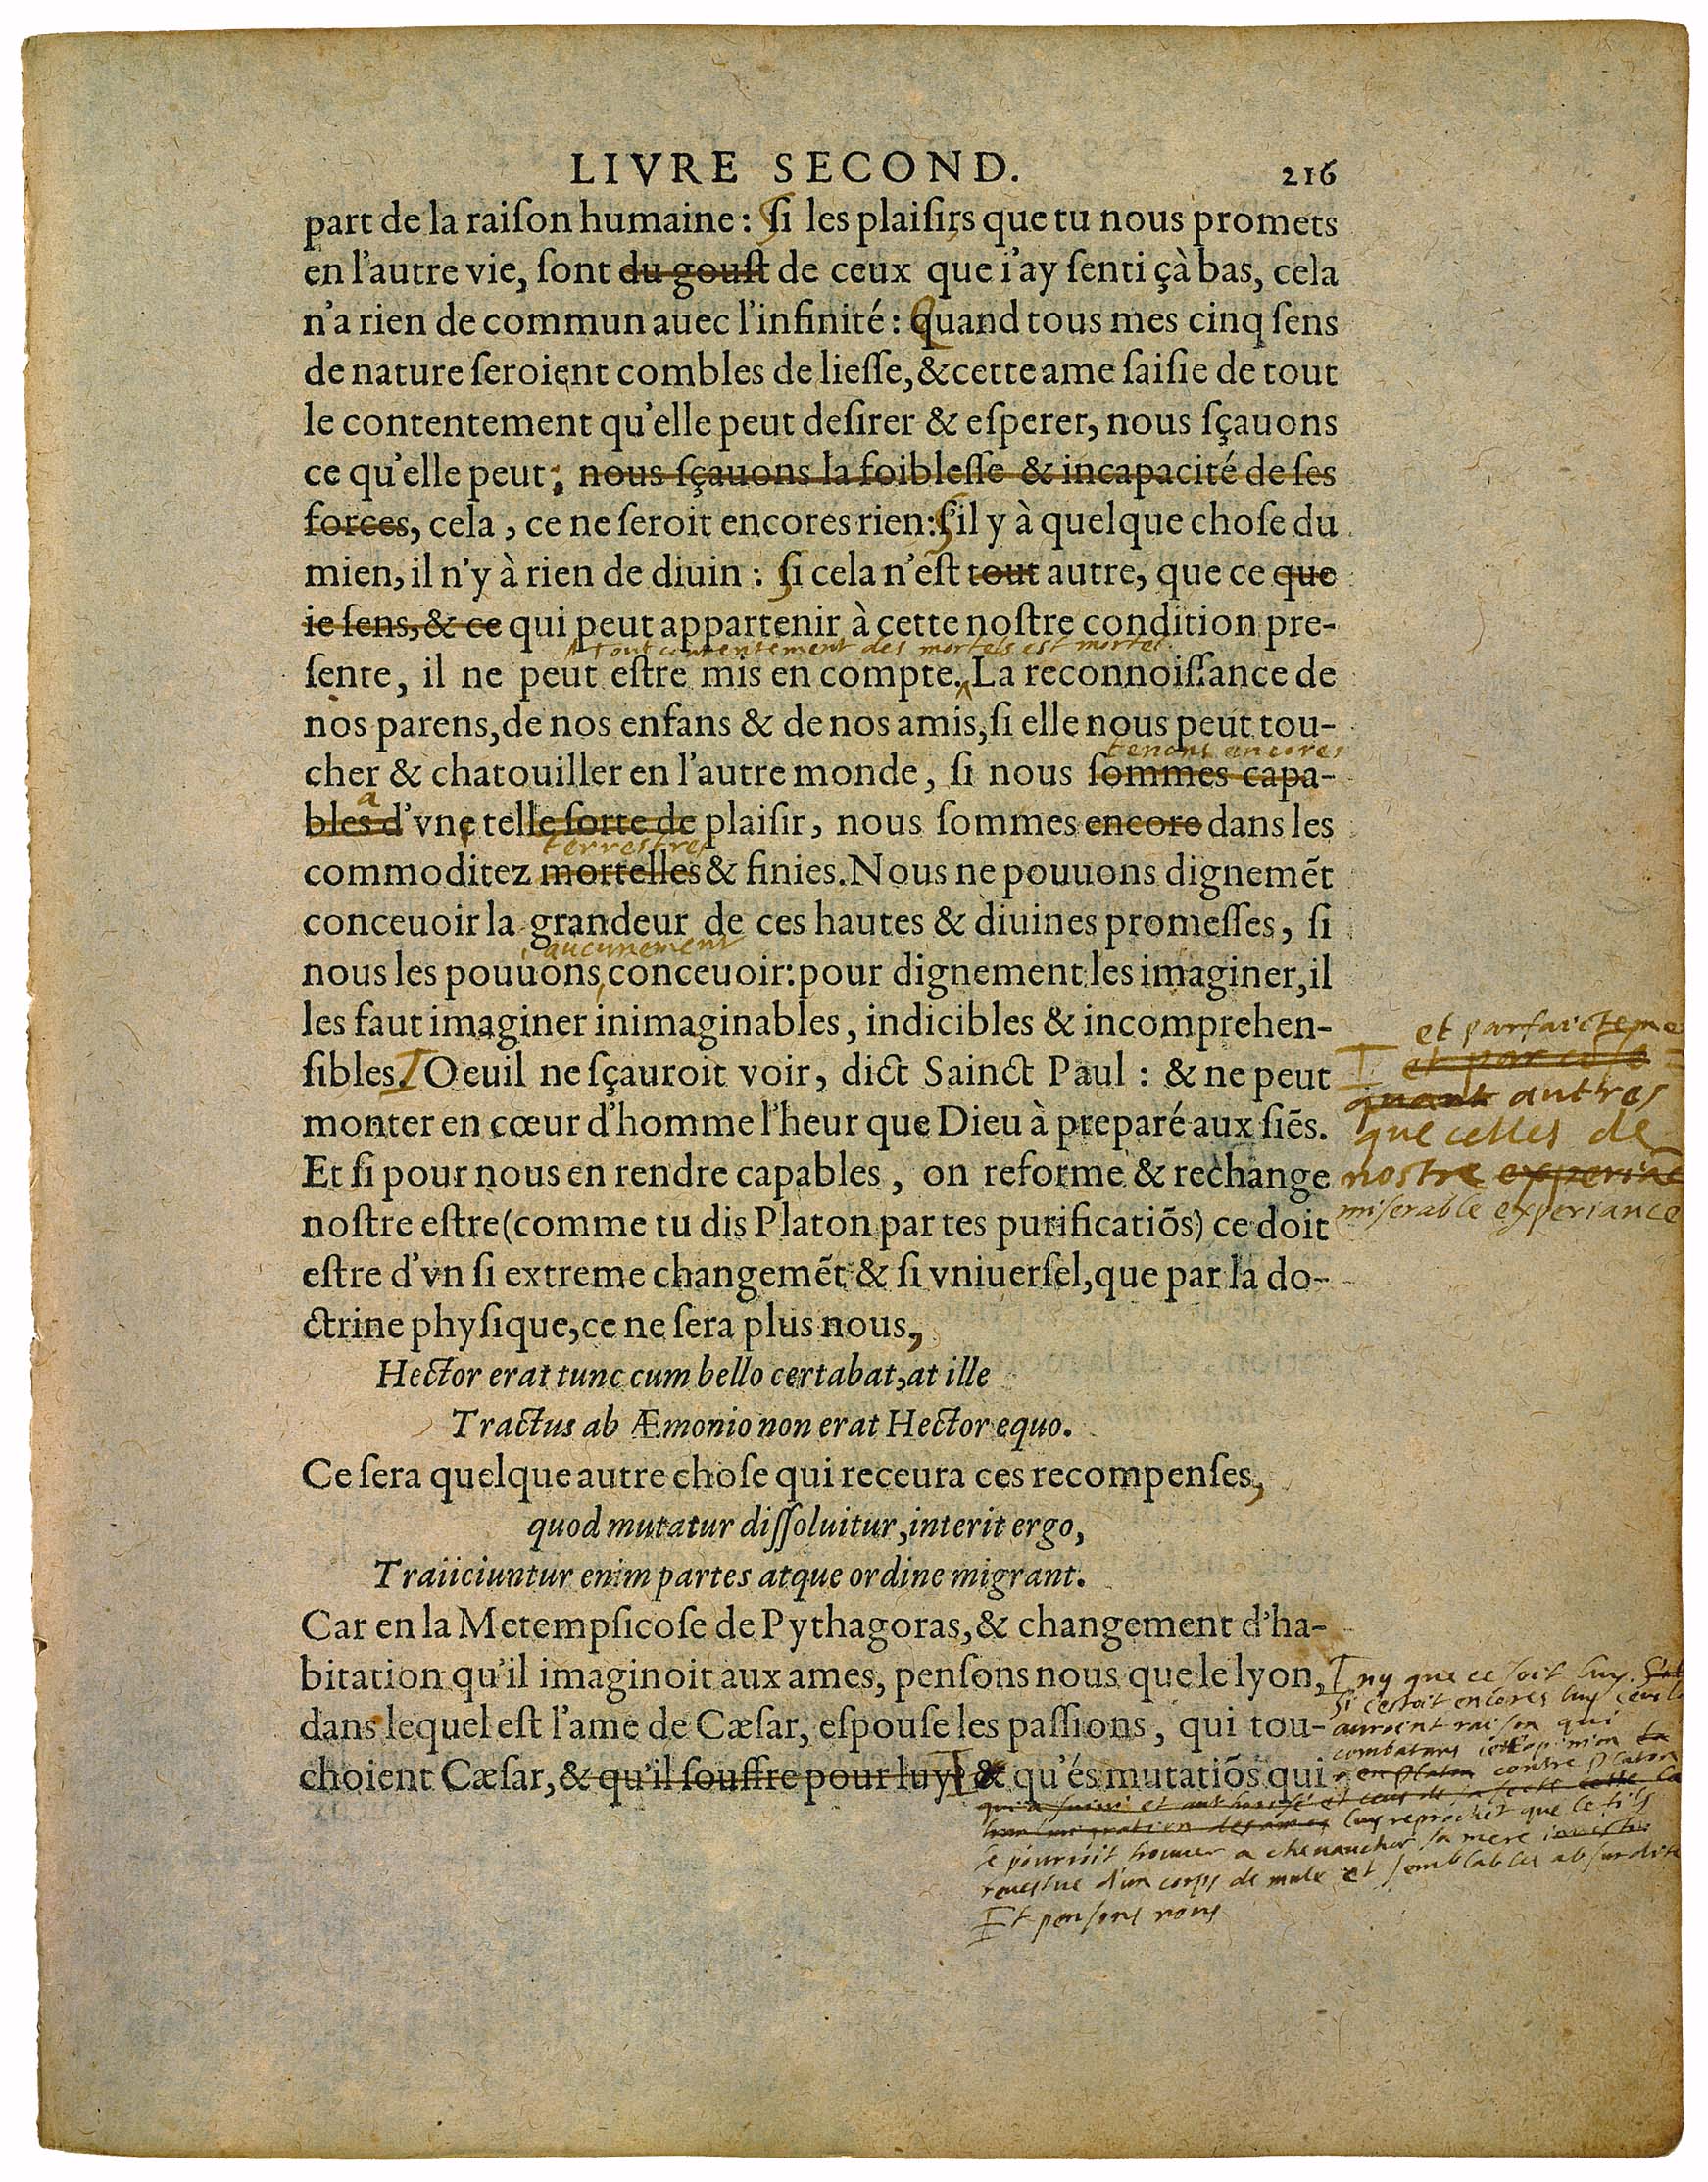 LIVRE SECOND. 216
part de la raiſon humaine : ſi les plaiſirs que tu nous promets
en l'autre vie, ſont du gouſt de ceux que i'ay ſenti çà bas, cela
n'a rien de commun auec l'infinité : Quand tous mes cinq ſens
de nature ſeroient combles de lieſſe, & cette ame ſaiſie de tout
le contentement qu'elle peut deſirer & eſperer, nous ſçauons
ce qu'elle peut ; nous ſçauons la foibleſſe & incapacité de ſes
forces, cela , ce ne ſeroit encores rien : S'il y à quelque choſe du
mien, il n'y à rien de diuin : ſi cela n'eſt tout autre, que ce que
ie ſens, & ce qui peut appartenir à cette noſtre condition pre-
Tout contentement des mortels est mortel.
ſente, il ne peut eſtre mis en compte. La reconnoiſſance de
nos parens, de nos enfans & de nos amis, ſi elle nous peut tou-
tenons encores
cher & chatouiller en l'autre monde, ſi nous ſommes capa-
a
bles d'vne telle ſorte de plaiſir, nous ſommes encore dans les
terrestres
commoditez mortelles & finies. Nous ne pouuons dignemẽt
conceuoir la grandeur de ces hautes & diuines promeſſes, ſi
aucunement
nous les pouuons conceuoir : pour dignement les imaginer, il
les faut imaginer inimaginables, indicibles & incomprehen-
ſibles. Oeuil ne ſçauroit voir, dict Sainct Paul : & ne peut
monter en cœur d'homme l'heur que Dieu à preparé aux ſiẽs.
Et ſi pour nous en rendre capables, on reforme & rechange
noſtre eſtre (comme tu dis Platon par tes purificatiõs) ce doit
eſtre d'vn ſi extreme changemẽt & ſi vniuerſel, que par la do-
ctrine phyſique, ce ne ſera plus nous,
Hector erat tunc cum bello certabat, at ille
Tractus ab Æmonio non erat Hector equo.
Ce ſera quelque autre choſe qui receura ces recompenſes,
quod mutatur diſſoluitur, interit ergo,
Traiiciuntur enim partes atque ordine migrant.
Car en la Metempſicoſe de Pythagoras, & changement d'ha-
bitation qu'il imaginoit aux ames, penſons nous que le lyon,
dans lequel eſt l'ame de Cæſar, eſpouſe les paſſions, qui tou-
choient Cæſar, & qu'il ſouffre pour luy & qu'és mutatiõs qui
et parfaicteme
autres
que celles de
nostre
miserable experiance
ny que ce soit luy.
Si c'estoit encores luy ceus la
auroint raison qui
combatans l'opinion
contre Platon
luy reprochet que le fils
se pourroit trouuer a cheuaucher sa mere
reuestue d'un corps de mule et semblables absurdite
Et pensons nous